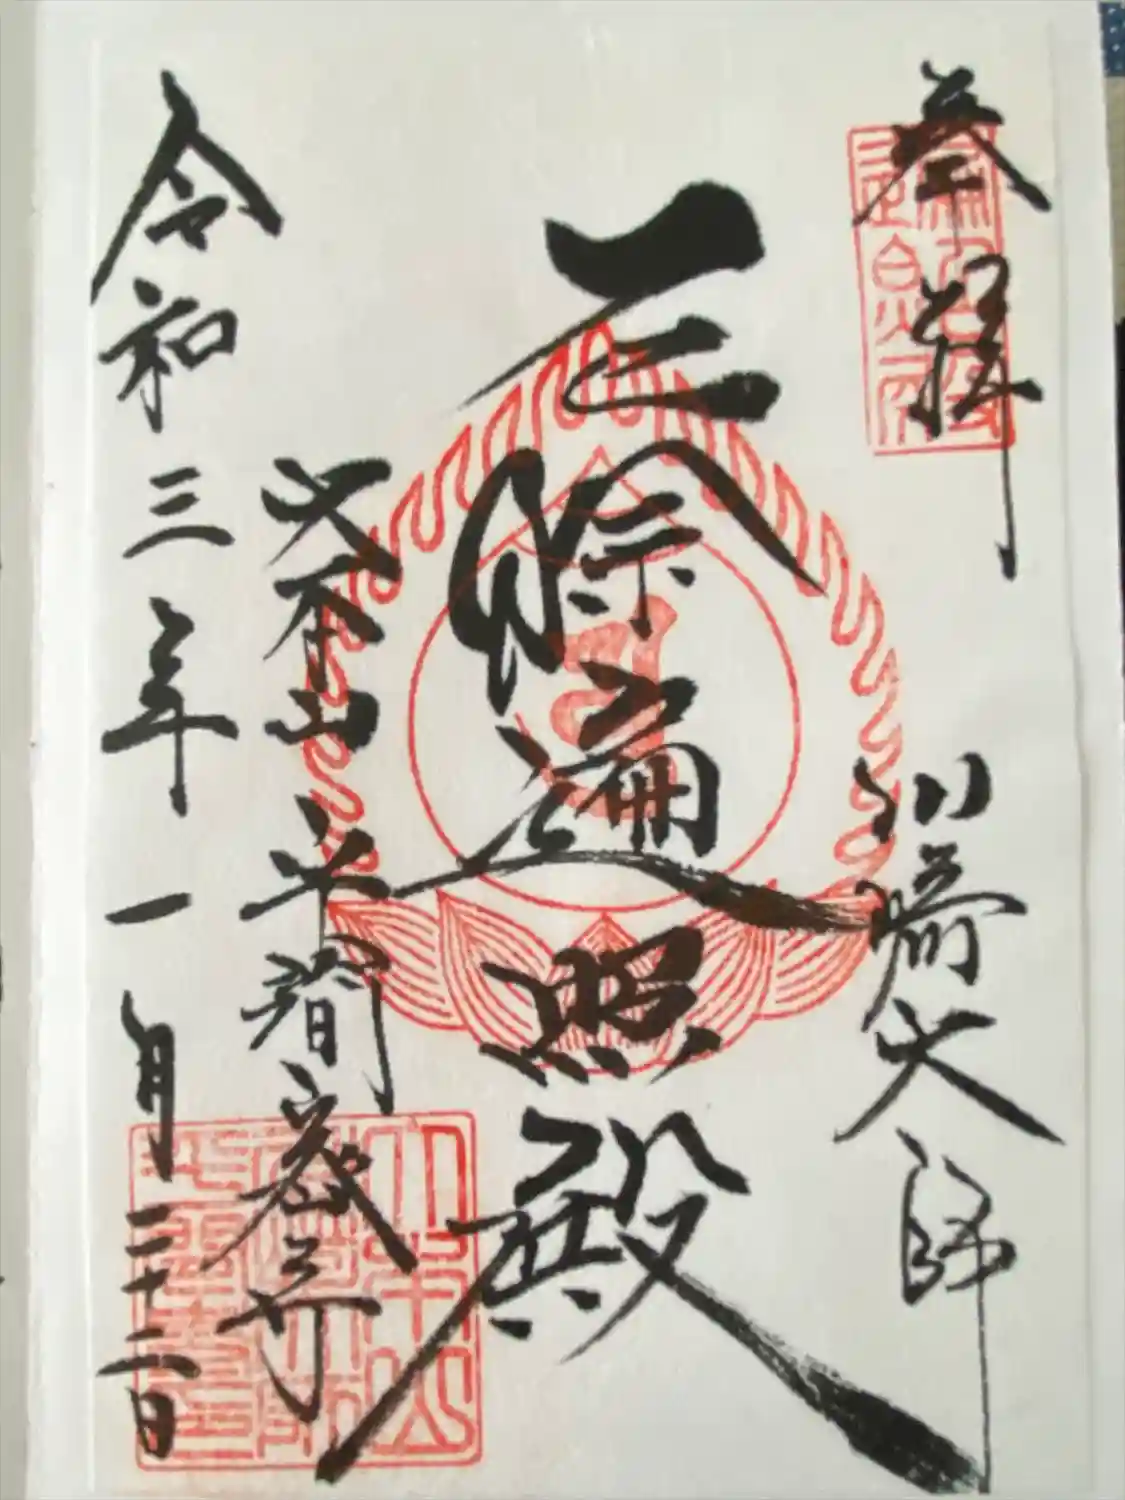 奉拝
川崎大師
厄除遍照殿
大本山平間密寺
令和三年一月二十二日